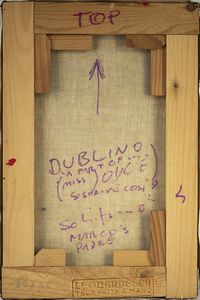 TOP
DUBLINO
A PART OF...
(MISS) 
SI SCRIVE COSI
MARCO'S
PADRE
LEONARDESCA
TELA FATTA A MANO